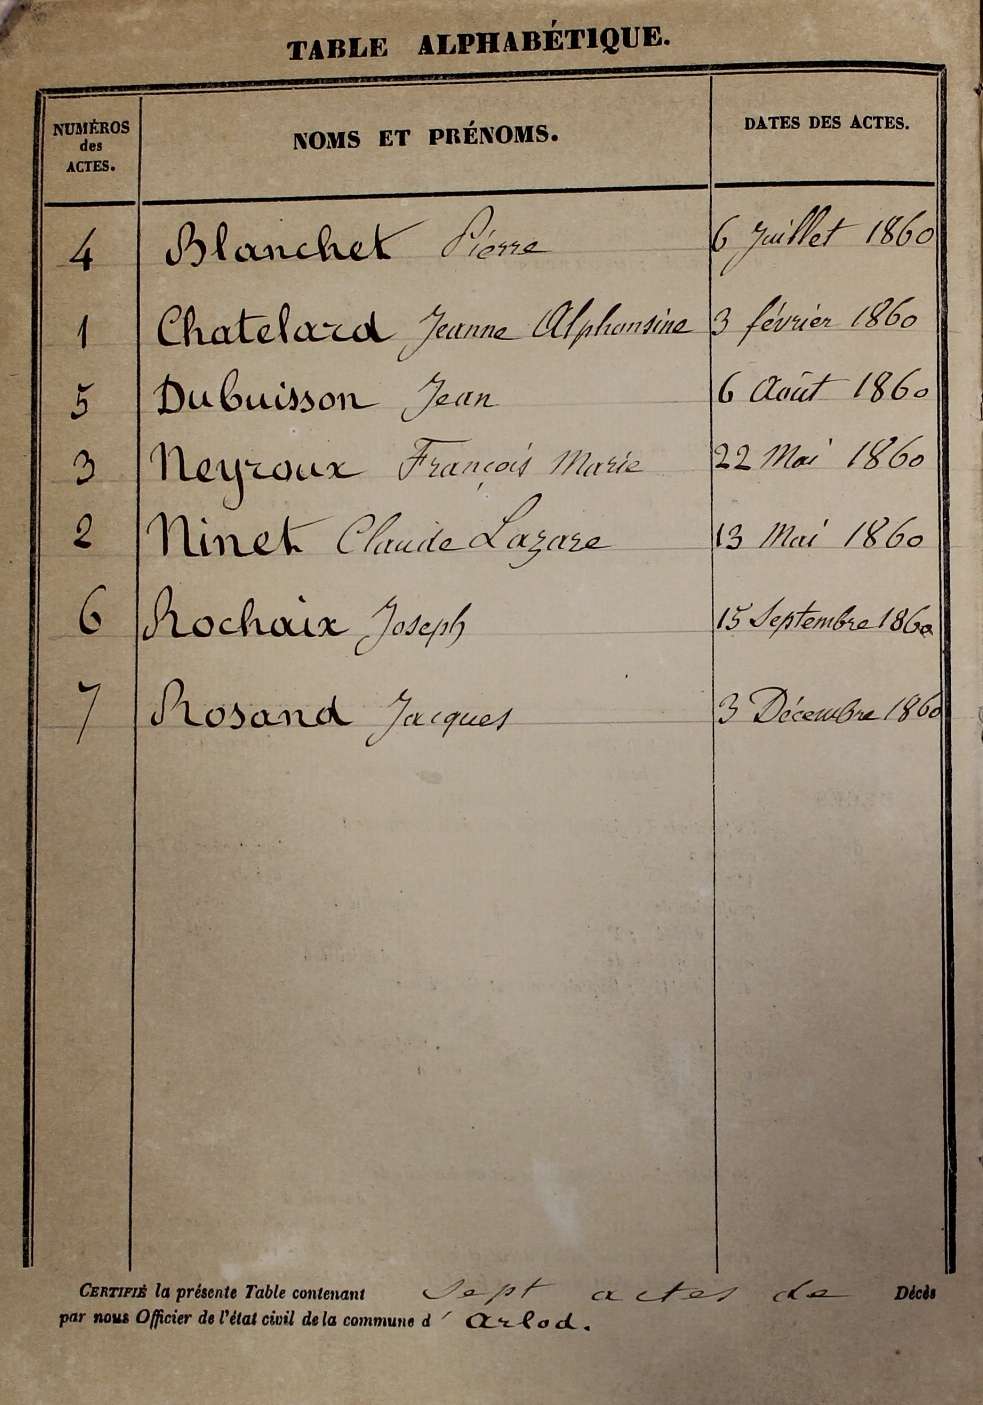 TABLE ALPHABÉTIQUE.
NUMÉROS des ACTES. NOMS ET PRÉNOMS. DATES DES ACTES.
4 Blanchet Pierre 6 Juillet 1860
1 Chatelard Jeanne Alphonsine 3 février 1860
5 Dubuisson Jean 6 Août 1860
3 Neyroux François Marie 22 Mai 1860
2 Ninet Claude Lazare 13 Mai 1860
6 Rochaix Joseph 15 Septembre 1860
7 Rosand Jacques 3 Décembre 1860
CERTIFIÉ la présente Table contenant Sept actes de Décès
par nous Officier de l'état civil de la commune d' Arlod.